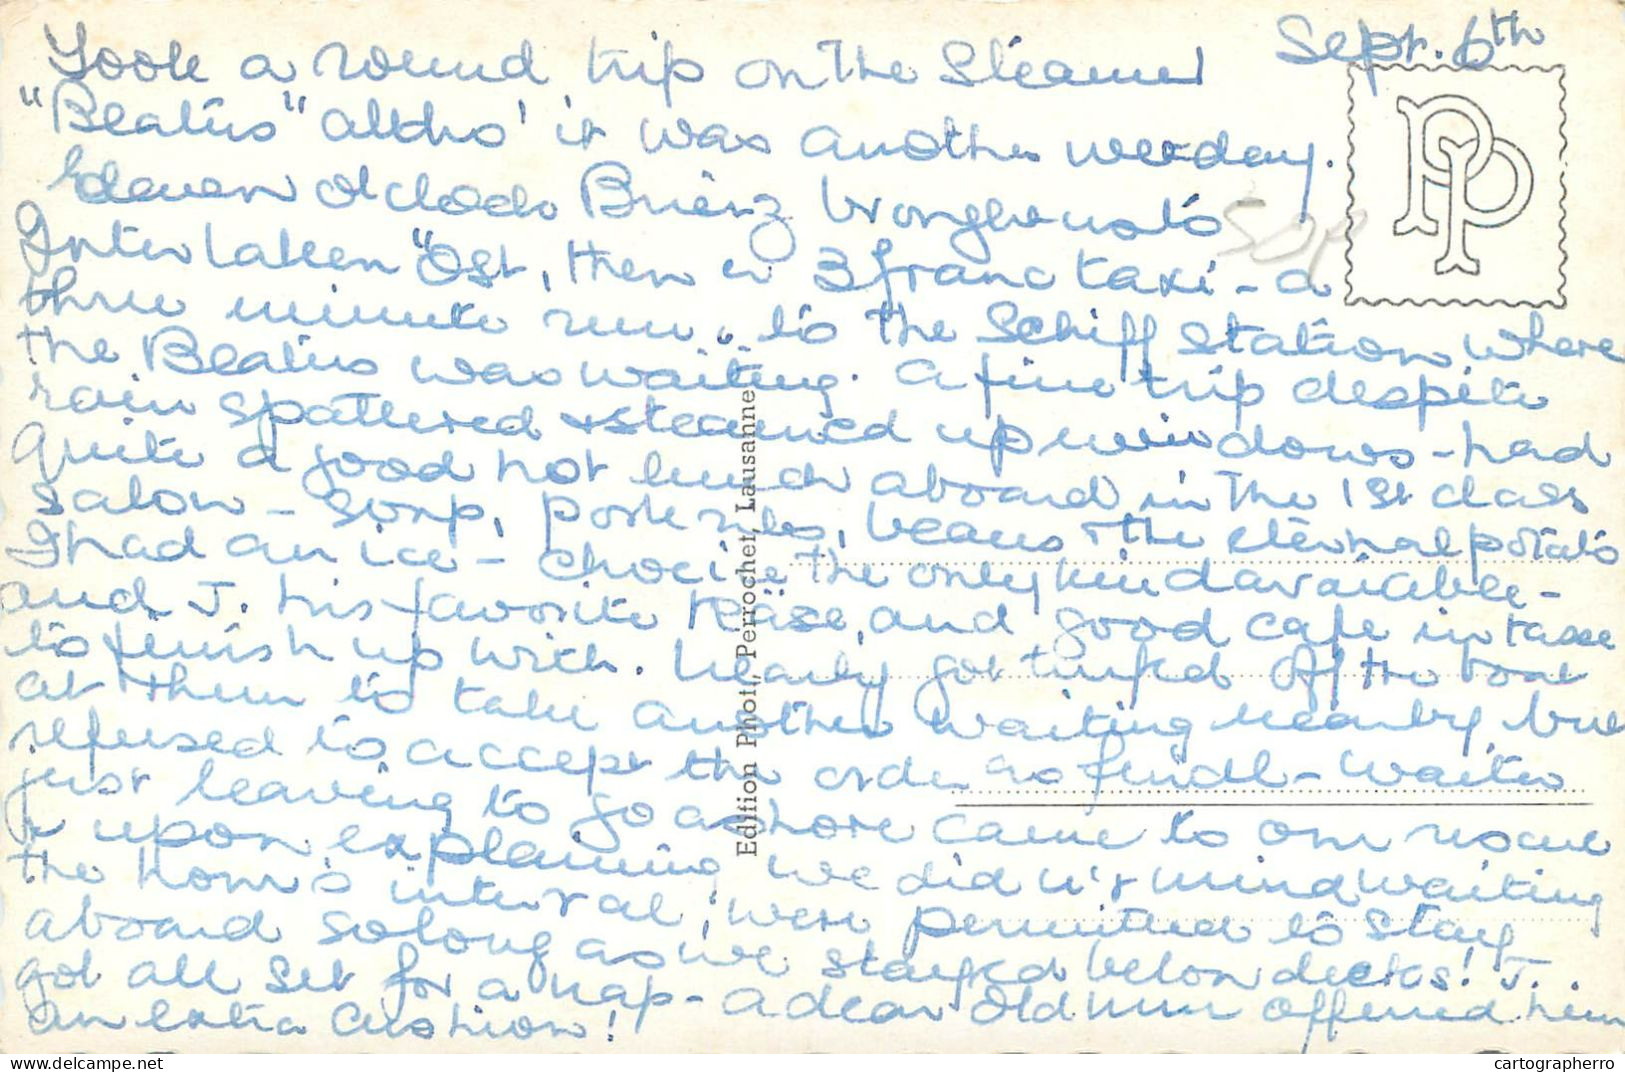 Sept. 6th
Took a round trip on the Steamer
"Beatus" altho' it was another wet day.
Eleven O'clock Brienz brought us to
Interlaken "Ost, then a 3 franc taxi - a
three minute run to the Schiff Station where
the Beatus was waiting. A fine trip despite
rain spattered & steamed up windows - had
quite a good hot lunch aboard in the 1st class
salon - soup, pork ribs, beans & the eternal potato
I had an ice - the only kind available -
and J. his favorite Käse, and good cafe in tasse
to finish up with. Nearly got turfed off the boat
at Thun to take another waiting nearby, but
refused to accept the order as final - waiter
just leaving to go ashore came to our rescue
& upon explaining we didn't mind waiting
the hour's interval, were permitted to stay
aboard so long as we stayed below decks! J.
got all set for a nap - a dear old nun offered him
an extra cushion!
PP
Edition Phot. Perrochet, Lausanne
cartographerro